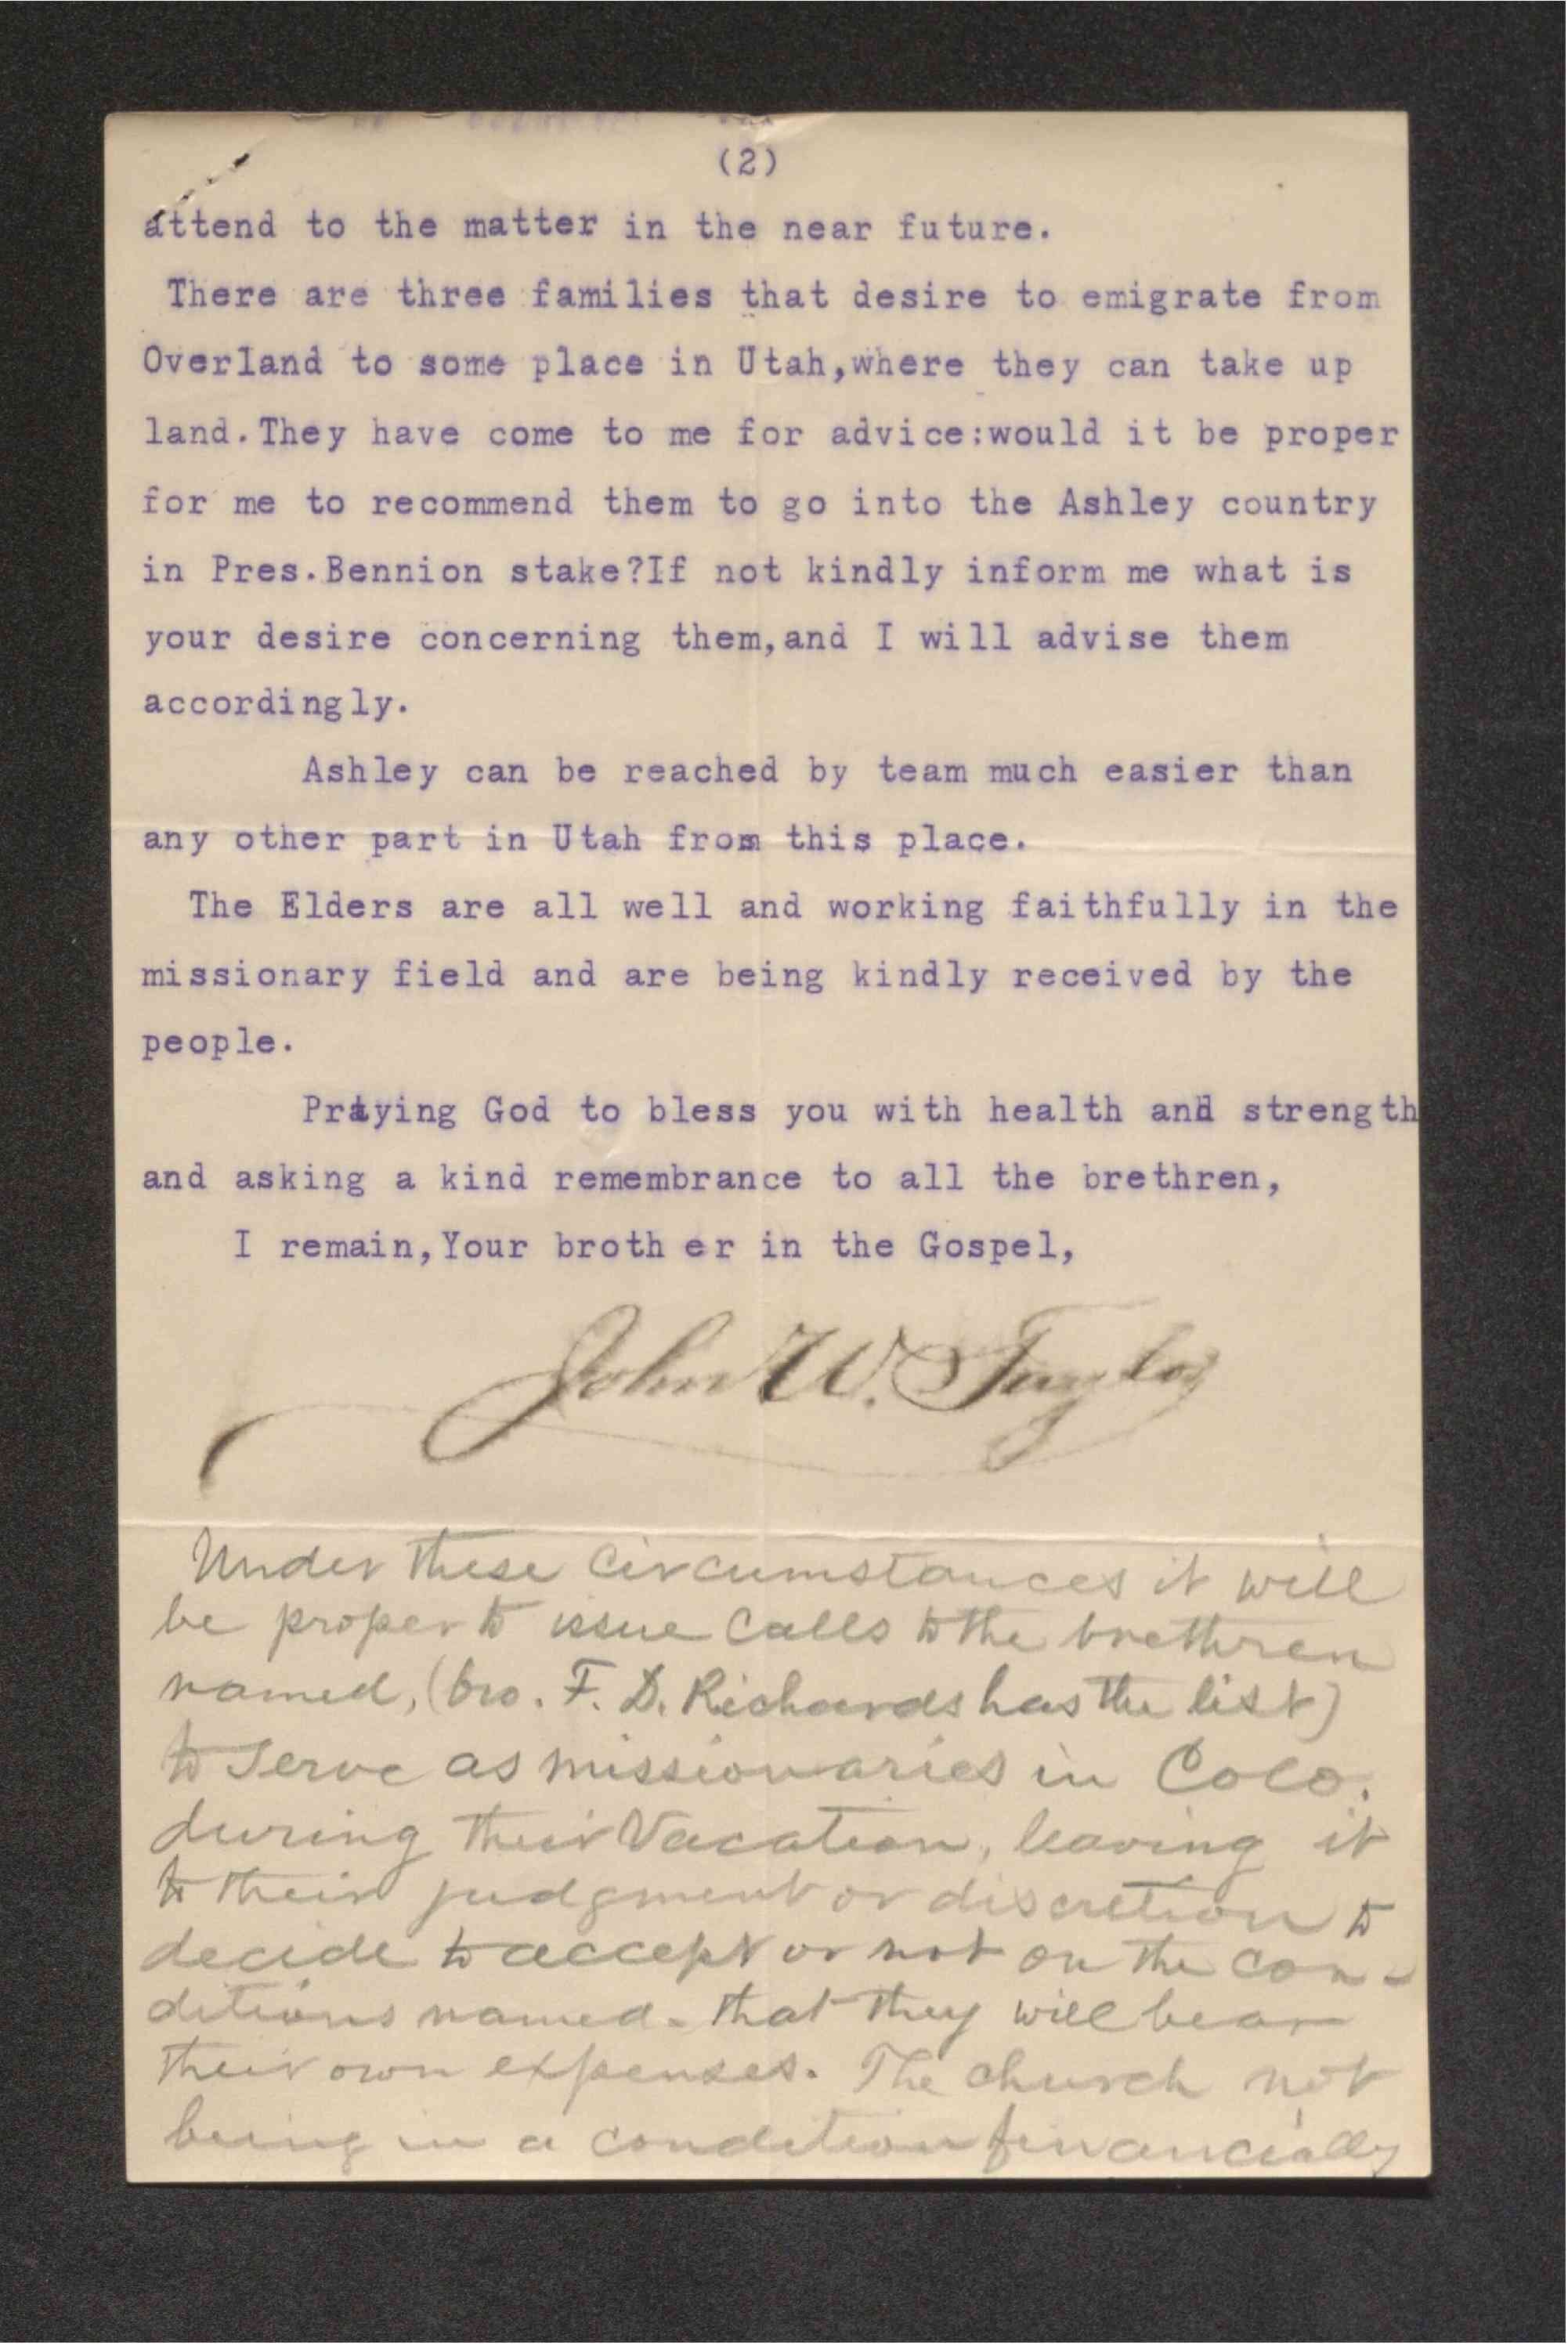 (2)
attend to the matter in the near future.
There are three families that desire to emigrate from
Overland to some place in Utah,where they can take up
land.They have come to me for advice:would it be proper
for me to recommend them to go into the Ashley country
in Pres.Bennion stake?If not kindly inform me what is
your desire concerning them,and I will advise them
accordingly.
Ashley can be reached by team much easier than
any other part in Utah from this place.
The Elders are all well and working faithfully in the
missionary field and are being kindly received by the
people.
Praying God to bless you with health and strength
and asking a kind remembrance to all the brethren,
I remain,Your brother in the Gospel,
John W. Taylor
Under these circumstances it will
be proper to issue calls to the brethren
named, (bro. F. D. Richards has the list)
to serve as missionaries in Colo.
during their Vacation, leaving it
to their judgment or discretion to
decide to accept or not on the con-
ditions named - that they will bear
their own expenses. The church not
being in a condition financially